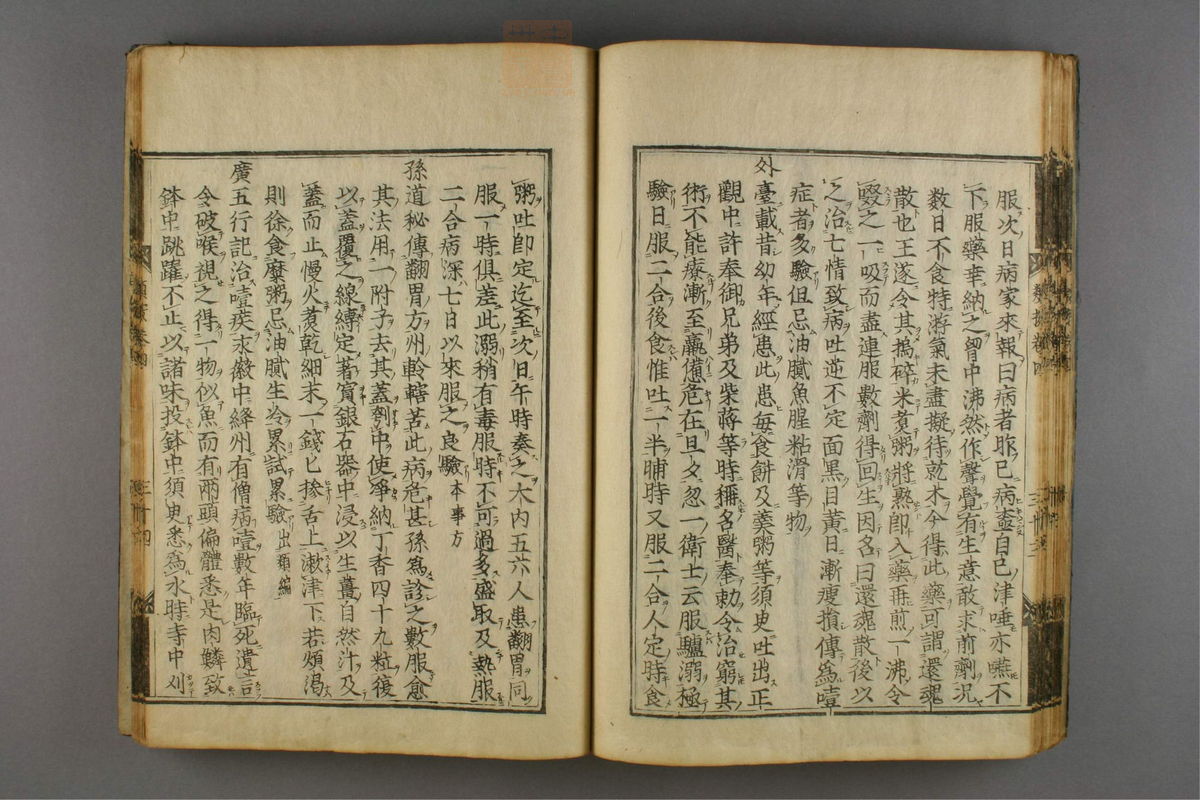 服次日病家來報曰病者昨已病盡自已津唾亦嚥不
下服藥幸納之胷中沸然作聲覺有生意敢求前劑況
數日不食特游氣未盡擬待就木今得此藥可謂還魂
散也王遂令其搗碎米煮粥將熟即入藥再煎一沸令
啜之一吸而盡連服數劑得回生因名曰還魂散後以
之治七情致病吐逆不定面黒目黃日漸瘦損傳為噎
症者多驗但忌油膩魚腥粘滑等物
外臺載昔幼年經患此患每食餅及羹粥等須臾吐出正
觀中許奉御兄弟及柴蔣等時稱名醫奉勅令治窮其
術不能療漸至羸憊危在旦夕忽一衛士云服驢溺極
驗日服二合後食惟吐一半晡時又服二合人定時食
粥吐即定迄至次日午時奏之大内五六人患翻胃同
服一時俱差此溺稍有毒服時不可過多盛取及熱服
二合病深七日以來服之良驗本事方
孫道秘傳翻胃方州軨轄苦此病危甚孫為診之數服愈
其法用一附子去其蓋剜中使淨納丁香四十九粒復
以蓋覆之線縛定著實銀石器中浸以生薑自然汁及
蓋而止慢火煮乾細末一錢匕摻舌上漱津下若煩渴
則徐食糜粥忌油膩生冷累試累驗出類編
廣五行記治噎疾永徽中絳州有僧病噎數年臨死遺言
令破喉視之得一物似魚而有兩頭偏體悉是肉鱗致
鉢中跳躍不止以諸味投鉢中須臾悉為水時寺中刈